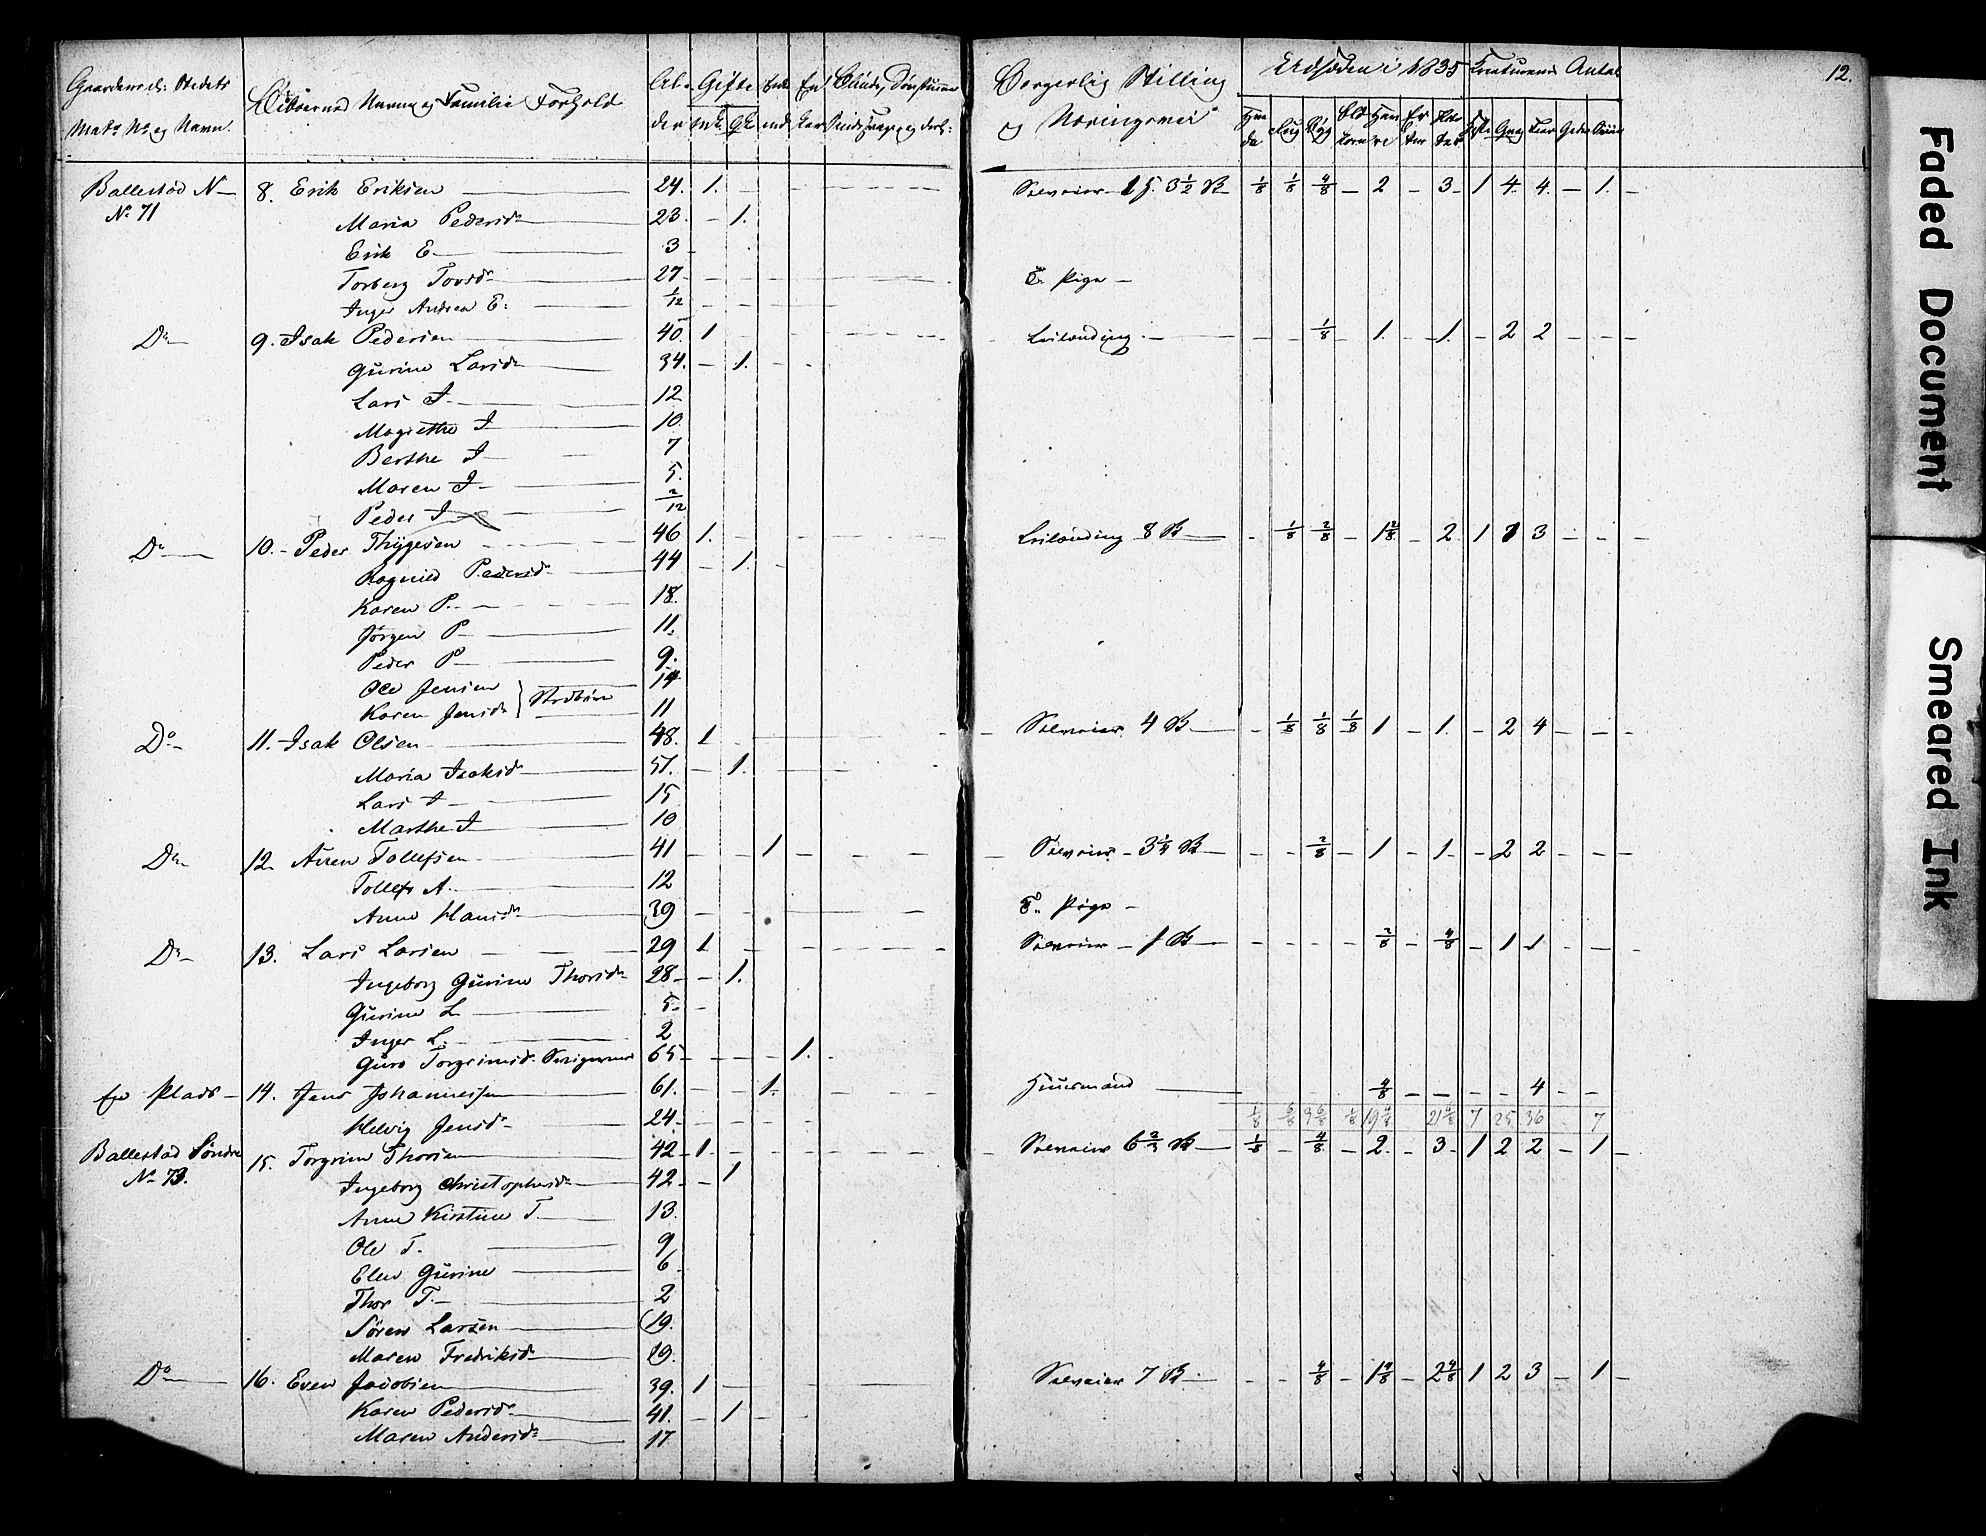 12.
Gaardens el: Stedets Mat: No og Navn.
Beboernes Navn og Familie Forhold
Al-der
Gifte
Mk.
Qk
Enke
md
En
ker
Blinde, Døvstumme
Sindssvage og desl:
Borgerlig Stilling
og Næringsvei
Udsæden i 1835
Kreaturenes Antal
Hve de
Rug
Byg
Havre
Er ter
Heste
Faar
Geder
Sviin
Ballestad N— 8. Erik Eriksen 24. 1. Selveier 15. 3 1/2 B 1/8 1/8 4/8 — 2 — 3. 1 4. 4. — 1. —
No 71
Maria Pedersd. 23. — 1.
Erik E. 3
Torberg Torsd. 27 T. Pige —
Inger Andrea E: 1/12
Do 9. Isak Pedersen 40. 1 Leilænding. — — 1/8 — 1. — 1. — 2 2 — — —
Gurine Larsd. 34. — 1.
Lars I. 12
Magrethe I 10
Berthe I 7
Maren I 5.
Peder I 2/12
Do 10. Peder Thygesen 46 1. Leilænding 8 B — 1/8 2/8 — 1 2/8 — 2. 1 3 — — —
Ragnild Pedersd. 44 — 1.
Karen P. 18.
Jørgen P 11.
Peder P 9.
Ole Jensen 14
Karen Jensd. 11
Stedbørn
Do 11. Isak Olsen 48. 1 Selveier 4 B — 1/8 1/8 1/8 1 — 1. — 2 4 — — —
Maria Isaksd. 51. — 1.
Lars I 15
Marthe I 10
Do 12. Aren Tollefsen 41 — — 1 Selveier — 3 1/4 B — — 2/8 — 1 — 1. — 2 2 — — —
Tollef A. 12
Anne Hansd. 39 T. Pige —
Do 13. Lars Larsen 29 1 Selveier — 1 B — — — — 2/8 — 4/8 — 1 1 — — —
Ingeborg Gurine Thorsd. 28 — 1.
Gurine L 5.
Inger L. 2
Guro Torgrimsd. 65 — — — 1.
Ex Plads 14. Jens Johannessen 61. — — 1. Huusmand 4/8 — — — — 4 — —
Helvig Jensd. 24.
1/8 6/8 19 4/8 21 4/8 7 25 36 7
Ballestad Søndre 15. Torgrim Thorsen 42 1 Selveier 6 2/3 B 1/8 — 4/8 — 2. — 3 1 2 2 — 1 —
No 73.
Ingeborg Christophersd. 42 — 1
Anne Kirstine T. 13.
Ole T. 9
Elen Gurine 6
Thor T. 2
Søren Larsen 19.
Maren Fredriksd. 19.
Do 16. Even Jacobsen 39. 1 Selveier 7 B — — 4/8 — 1 4/8 — 2 4/8 1 2 3 — 1 —
Karen Pedersd. 41. — 1
Maren Andersd. 17
Faded Document
Smeared Ink